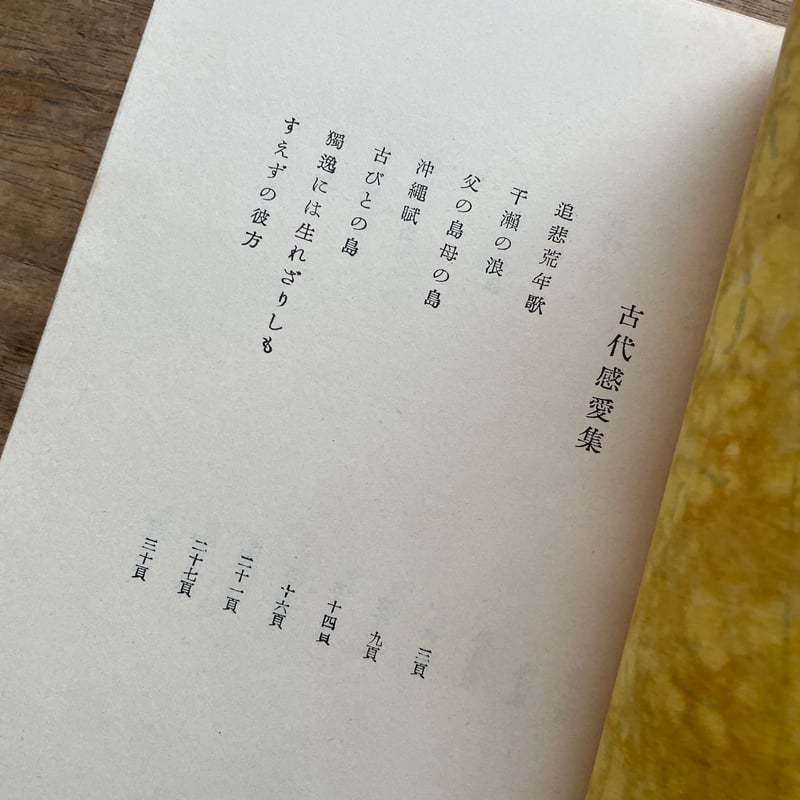 古代感愛集
追悲荒年歌
三頁
干瀬の浪
九頁
父の島母の島
十四頁
沖繩賦
十六頁
古びとの島
二十一頁
獨逸には生れざりしも
二十七頁
すえずの彼方
三十頁